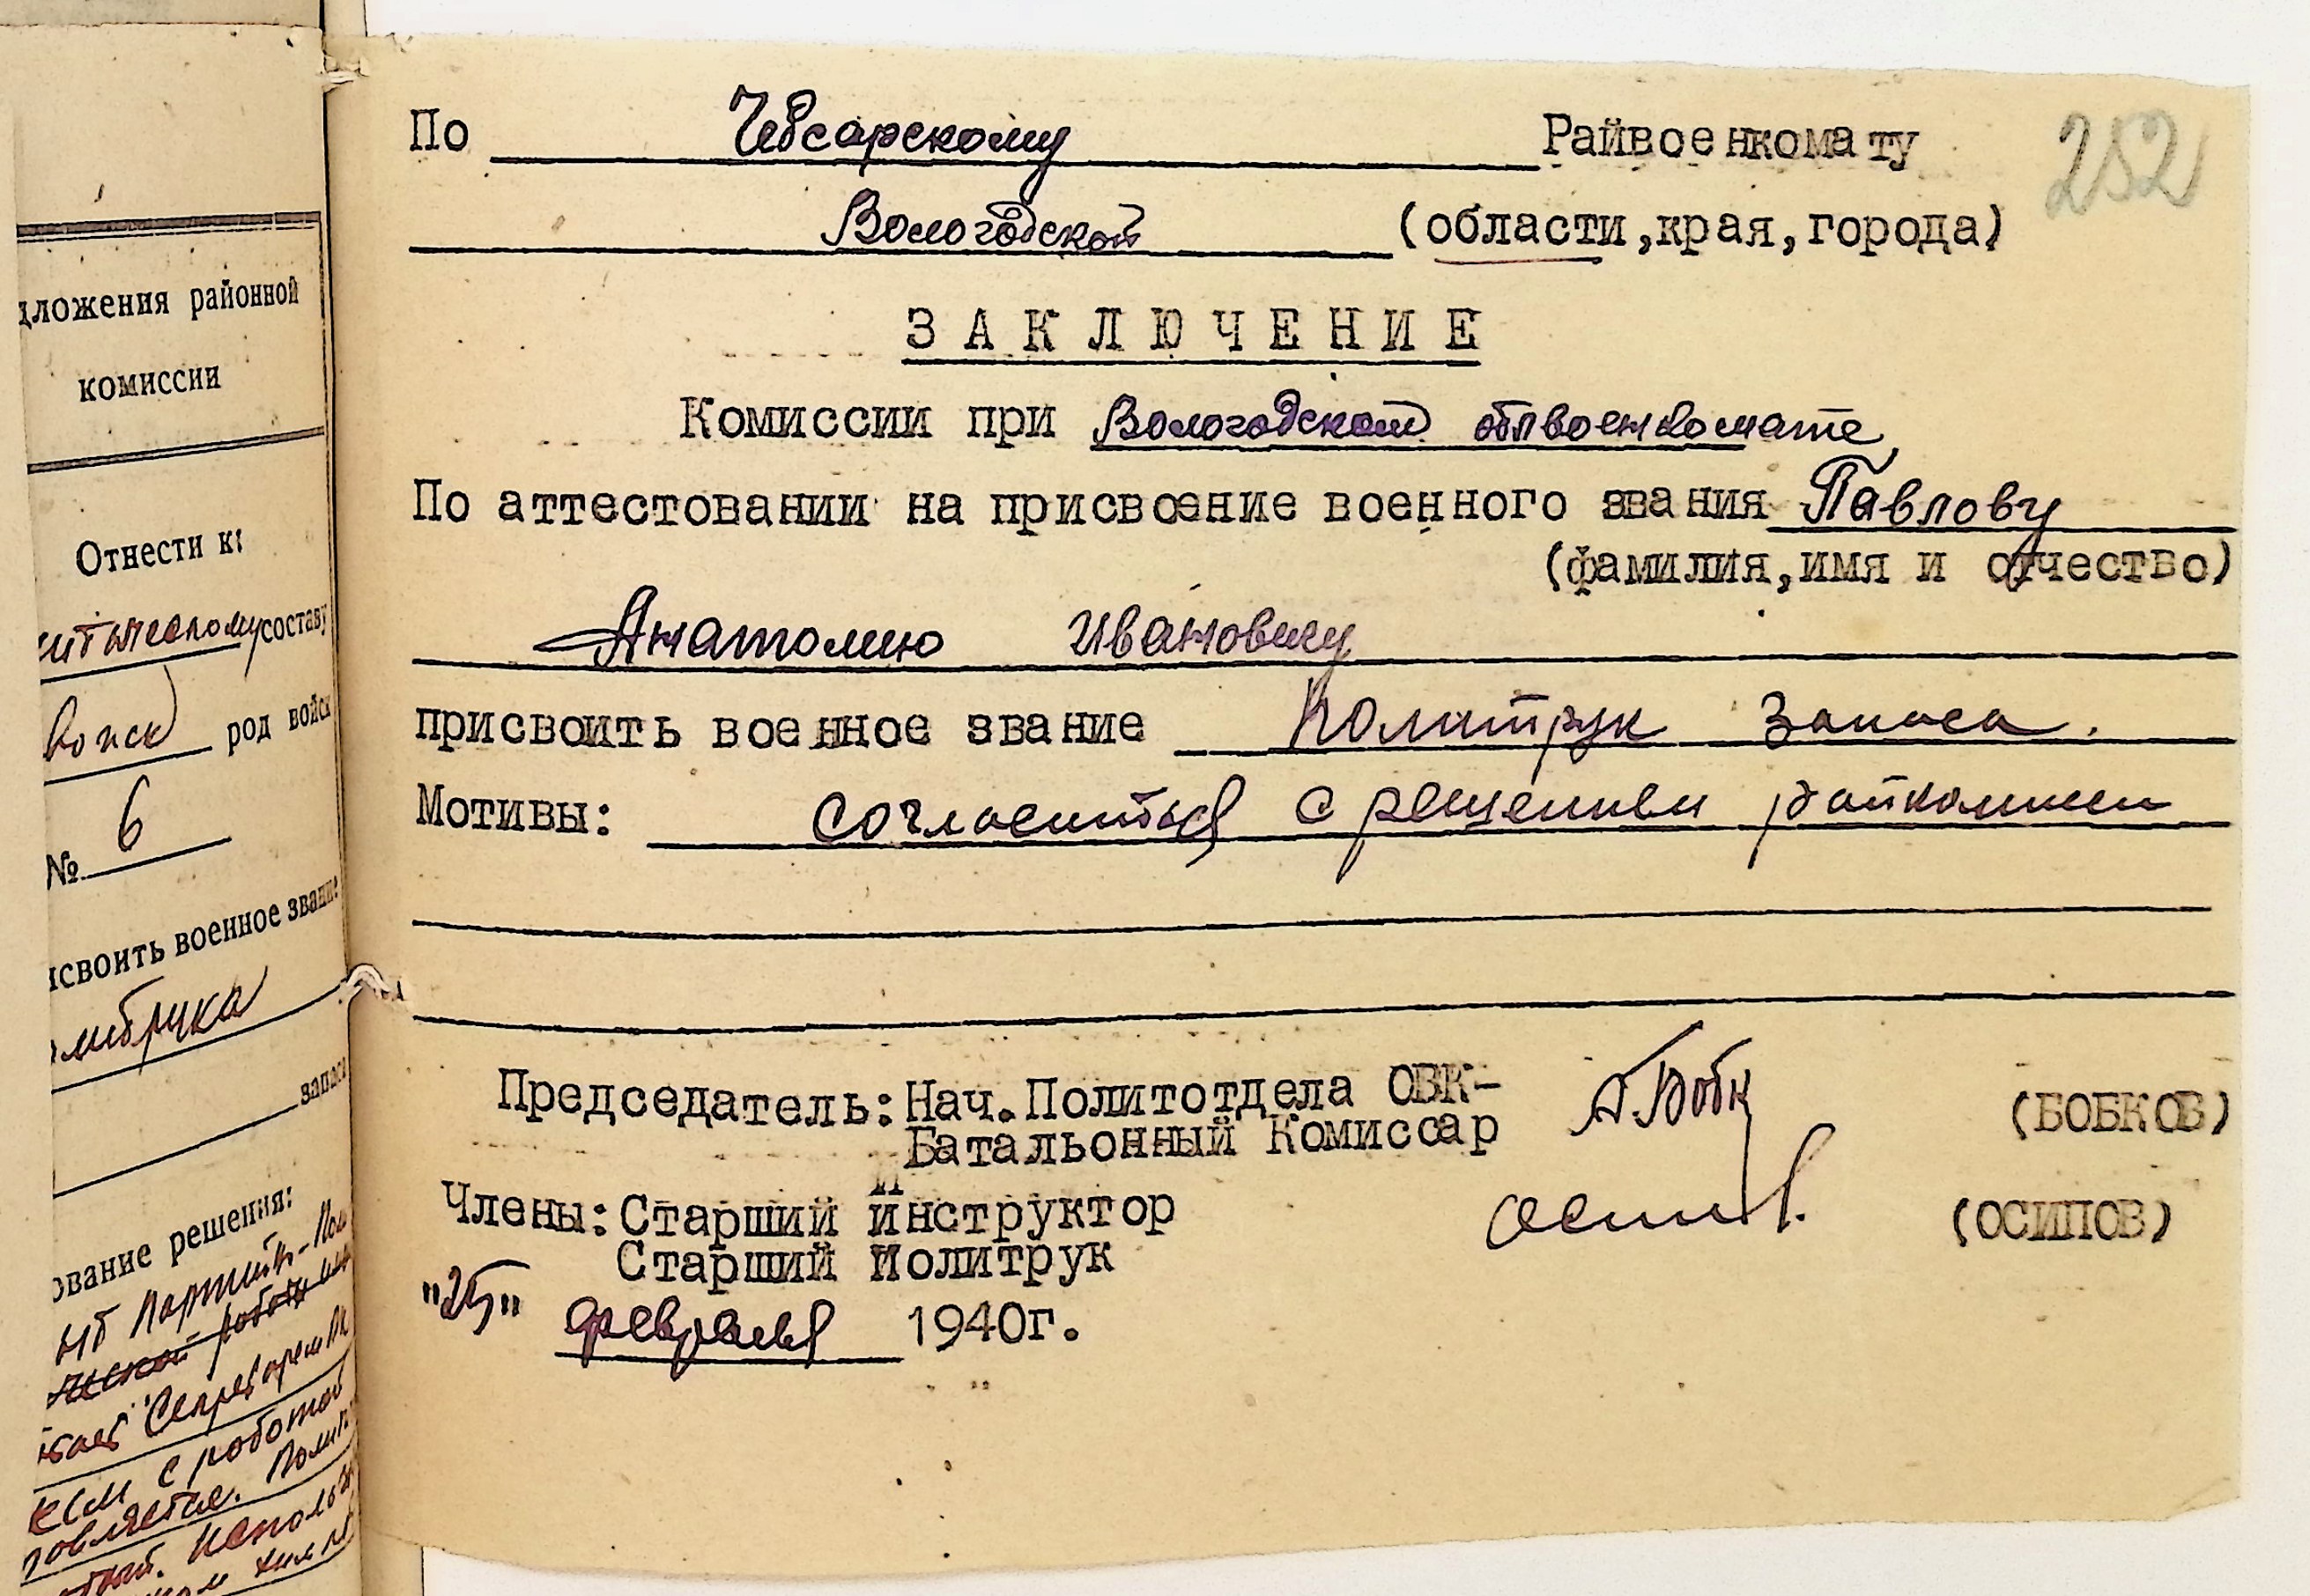 дложения районной
комиссии
Отнести к:
составу
род войск
№ 6
исвоить военное звание
запаса
ование решения:
с работой
252
По Чебсарскому Райвоенкомату
Вологодской (области, края, города)
ЗАКЛЮЧЕНИЕ
Комиссии при Вологодском облвоенкомате
По аттестовании на присвоение военного звания Павлову
(фамилия, имя и отчество)
Анатолию Ивановичу
присвоить военное звание Политрук запаса.
Мотивы: согласиться с решением райкомиссии
Председатель: Нач. Политотдела ОВК-
Батальонный Комиссар (БОБКОВ)
Члены: Старший инструктор
Старший политрук (ОСИПОВ)
"25" февраля 1940г.